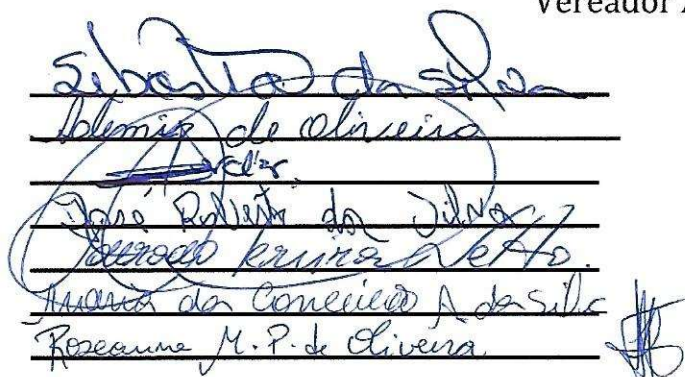 Vereador
Sebastião da Silva
Ademir de Oliveira
José Roberto da Silva
Pereira Netto.
Maria da Conceição A da Silva
Roseanne M. P. de Oliveira.